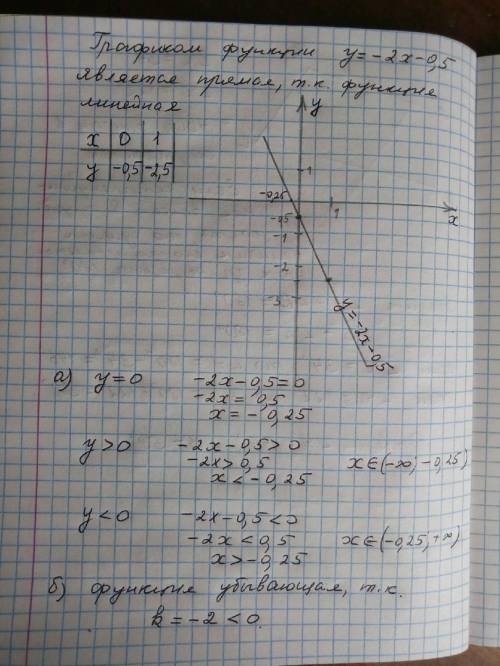 Графиком функции y = -2x-0,5
является прямая, т.к. функция
линейная
x 0 1
y -0,5 -2,5
y
1
-0,25
-0,5
1
x
-1
-2
-3
y=-2x-0,5
а) y=0 -2x-0,5=0
-2x=0,5
x=-0,25
y>0 -2x-0,5>0
-2x>0,5 x∈(-∞; -0,25)
x<-0,25
y<0 -2x-0,5<0
-2x<0,5 x∈(-0,25; +∞)
x>-0,25
б) функция убывающая, т.к.
k=-2<0.